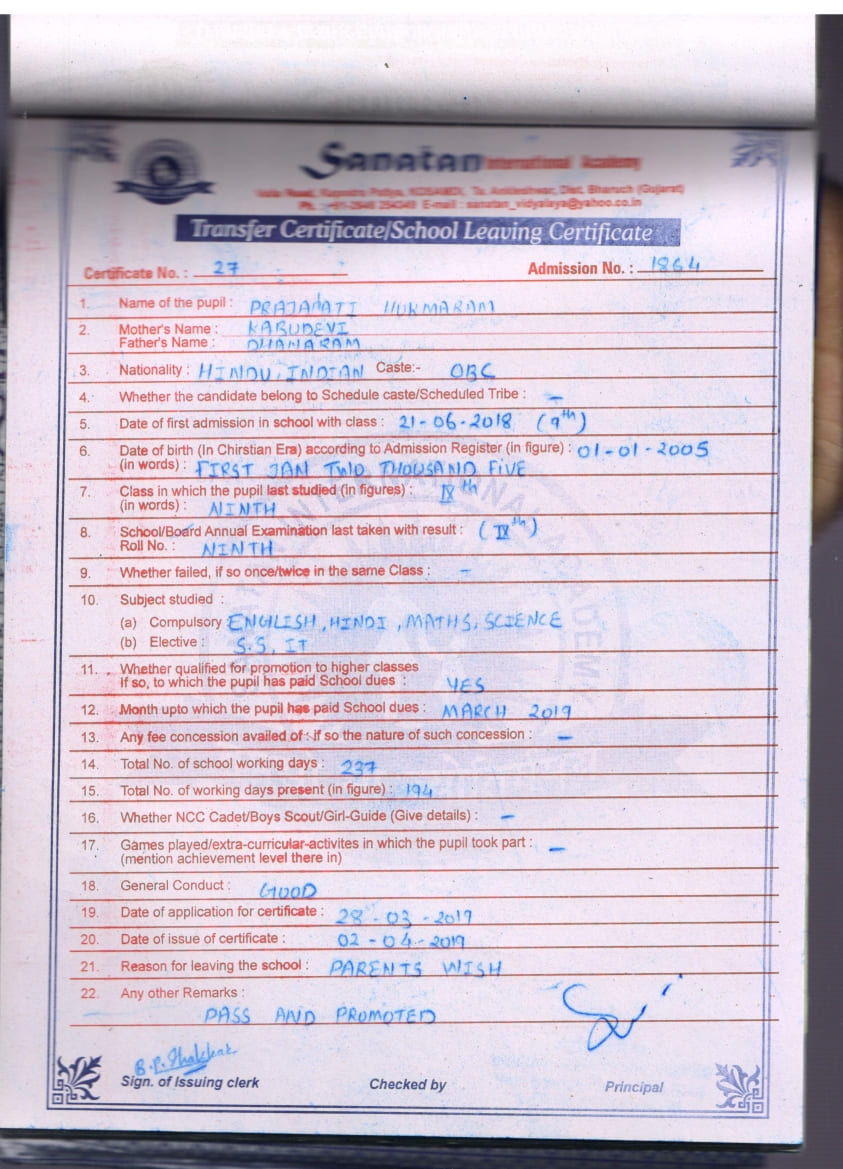 Sanatan International Academy
Valia Road, Rajendra Potiya, KOSAMDI, Ta. Ankleshwar, Dist. Bharuch (Gujarat)
E-mail : sanatan_vidyalaya@yahoo.co.in
Transfer Certificate/School Leaving Certificate
Certificate No. : 27 Admission No. : 1864
1. Name of the pupil : PRAJAPATI HUKMARAM
2. Mother's Name : KABUDEVI
Father's Name : DHANARAM
3. Nationality : HINDU, INDIAN Caste:- OBC
4. Whether the candidate belong to Schedule caste/Scheduled Tribe : –
5. Date of first admission in school with class : 21-06-2018 (9th)
6. Date of birth (In Chirstian Era) according to Admission Register (in figure) : 01-01-2005
(in words) : FIRST JAN TWO THOUSAND FIVE
7. Class in which the pupil last studied (in figures) : IXth
(in words) : NINTH
8. School/Board Annual Examination last taken with result : (IXth)
Roll No. : NINTH
9. Whether failed, if so once/twice in the same Class : –
10. Subject studied :
(a) Compulsory ENGLISH, HINDI, MATHS, SCIENCE
(b) Elective : S.S, IT
11. Whether qualified for promotion to higher classes
If so, to which the pupil has paid School dues : YES
12. Month upto which the pupil has paid School dues : MARCH 2019
13. Any fee concession availed of : if so the nature of such concession : –
14. Total No. of school working days : 237
15. Total No. of working days present (in figure) : 194
16. Whether NCC Cadet/Boys Scout/Girl-Guide (Give details) : –
17. Games played/extra-curricular-activites in which the pupil took part : –
(mention achievement level there in)
18. General Conduct : GOOD
19. Date of application for certificate : 28-03-2019
20. Date of issue of certificate : 02-04-2019
21. Reason for leaving the school : PARENTS WISH
22. Any other Remarks :
PASS AND PROMOTED
B.P. Thakkar
Sign. of Issuing clerk Checked by Principal